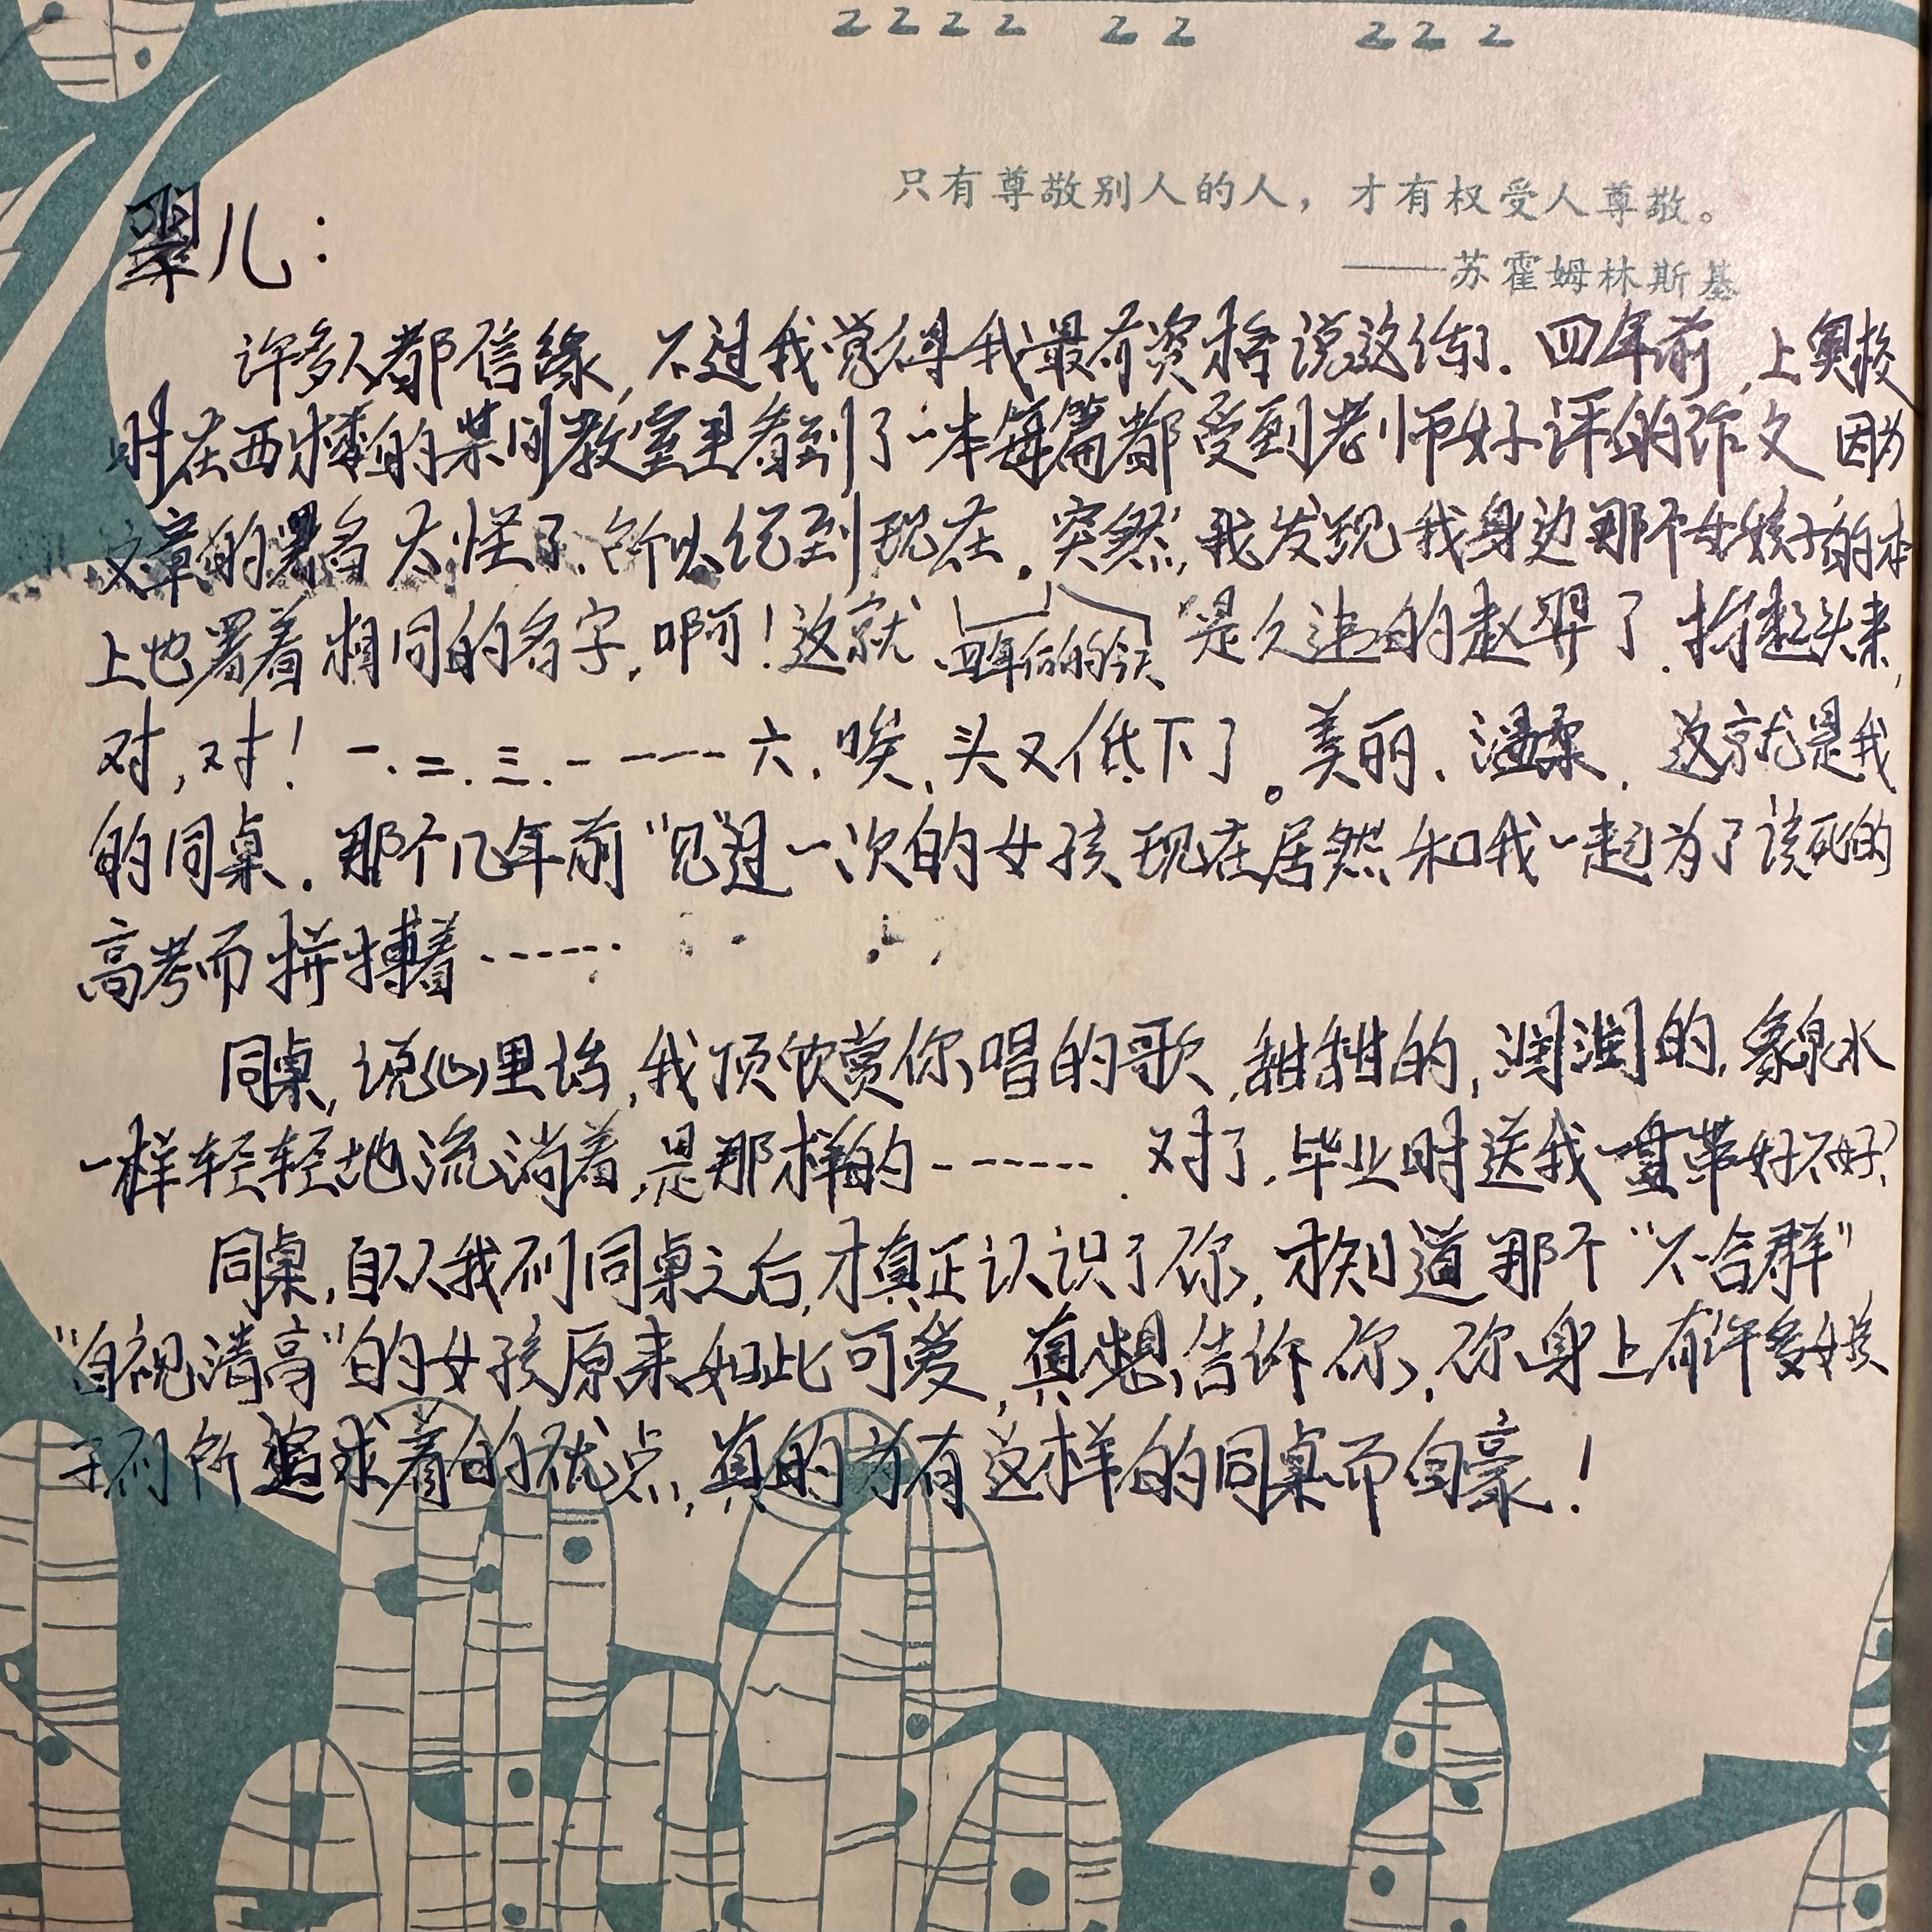 只有尊敬别人的人，才有权受人尊敬。
——苏霍姆林斯基
翠儿：
许多人都信缘，不过我觉得我最有资格说这话了．四年前，上奥校
时在西楼的某间教室里看到了一本每篇都受到老师好评的作文 因为
文章的署名太怪了．所以记到现在。突然，我发现我身边那个女孩子的本
上也署着相同的名字．啊！这就 四年后的今天 是久违的赵翠了．抬起头来，
对，对！一．二．三．……六．唉，头又低下了。美丽、温柔．这就是我
的同桌．那个几年前“见”过一次的女孩现在居然和我一起为了该死的
高考而拼搏着……
同桌，说心里话，我顶欣赏你唱的歌，甜甜的，润润的，象泉水
一样轻轻地流淌着，是那样的……．对了．毕业时送我一盘带好不好？
同桌，自从我们同桌之后，才真正认识了你．才知道那个“不合群”
“自视清高”的女孩原来如此可爱，真想告诉你，你身上有许多女孩
子们所追求着的优点，真的为有这样的同桌而自豪！